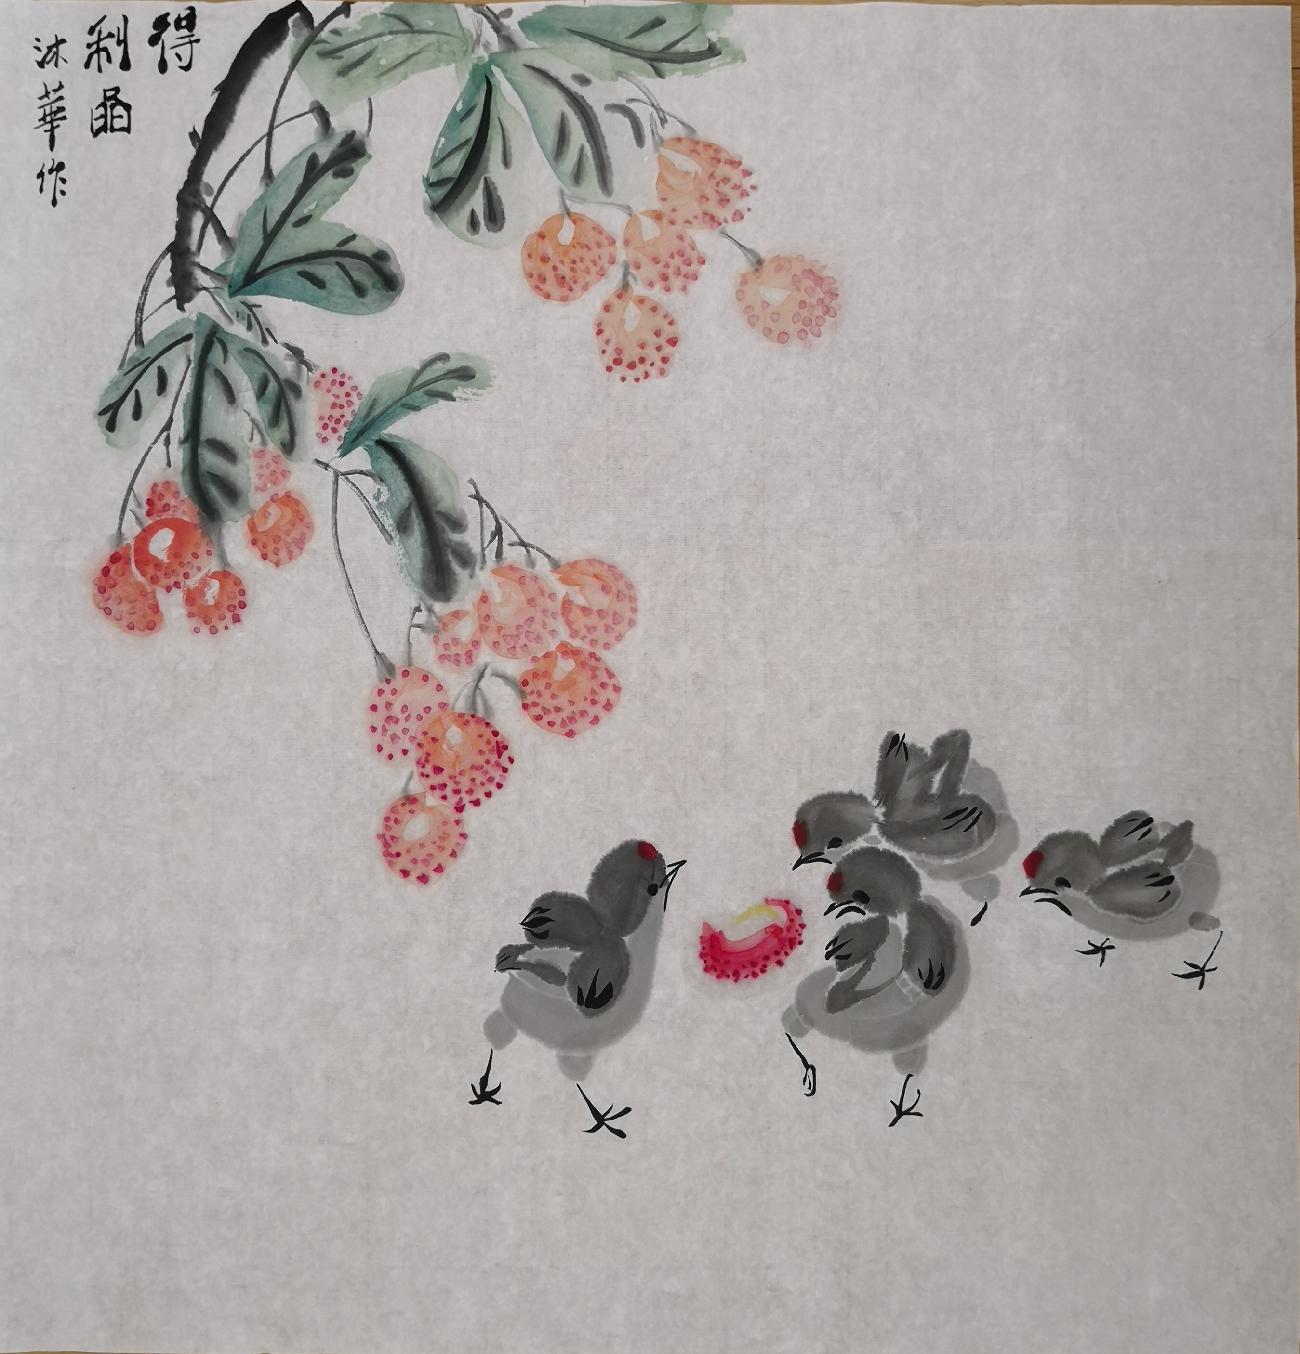 得
利
沐華作